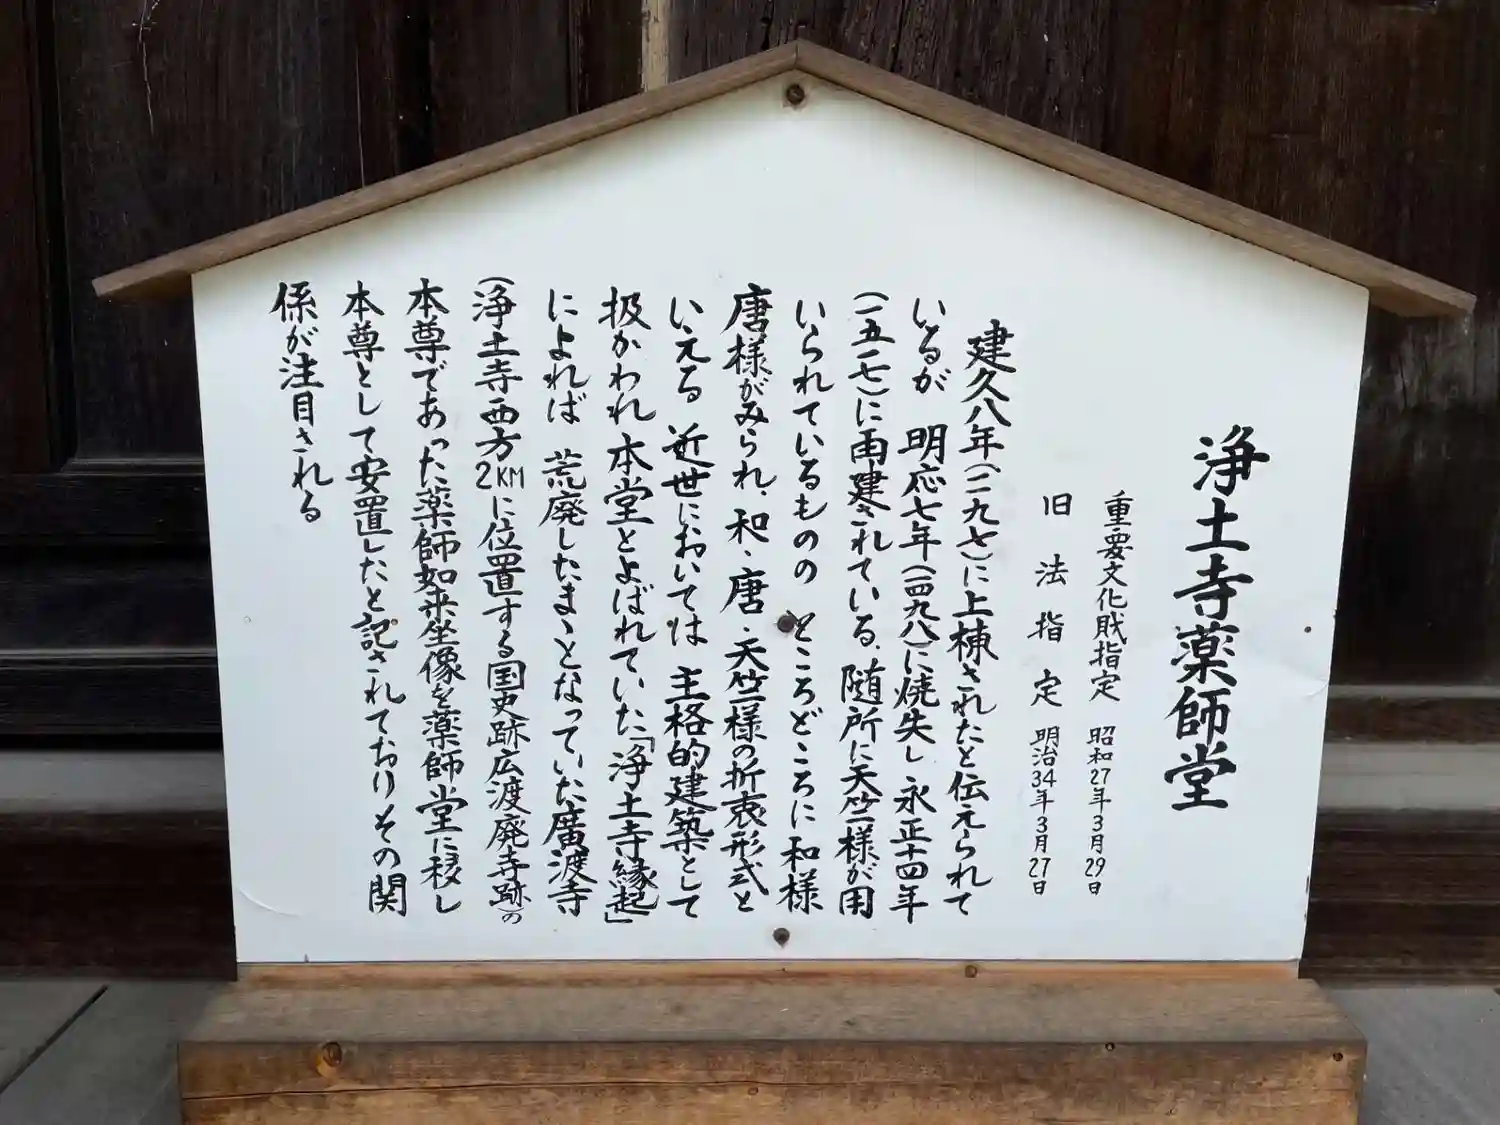 浄土寺薬師堂
重要文化財指定 昭和27年3月29日
旧法指定 明治34年3月27日
建久八年(一一九七)に上棟されたと伝えられて
いるが 明応七年(一四九八)に焼失し 永正十四年
(一五一七)に再建されている、随所に天竺様が用
いられているものの ところどころに和様
唐様がみられ、和・唐・天竺様の折衷形式と
いえる 近世においては 主格的建築として
扱かわれ 本堂とよばれていた「浄土寺縁起」
によれば 荒廃したまゝとなっていた廣渡寺
(浄土寺西方2KMに位置する国史跡広渡廃寺跡)の
本尊であった薬師如来坐像を薬師堂に移し
本尊として安置したと記されておりその関
係が注目される